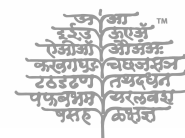 अ आ ™
इ ई उ ऊ ए
ऐ ओ औ अं अः
क ख ग घ ङ च छ ज झ ञ
ट ठ ड ढ ण त थ द ध न
प फ ब भ म य र ल व श
ष स ह ळ क्ष ज्ञ